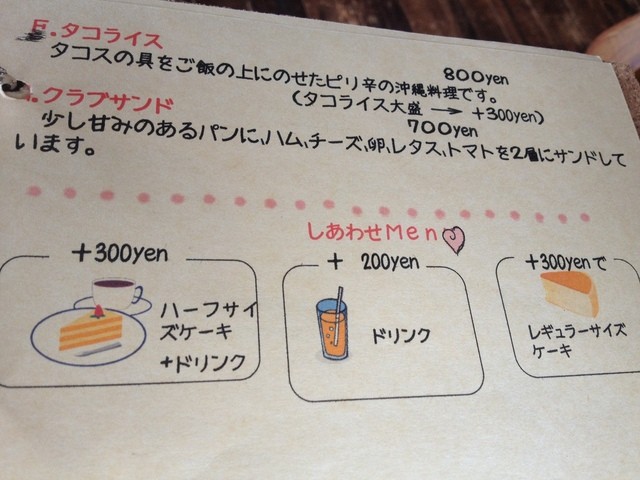 E.タコライス
800yen
タコスの具をご飯の上にのせたピリ辛の沖縄料理です。
(タコライス大盛 → +300yen)
.クラブサンド
700yen
少し甘みのあるパンに,ハム,チーズ,卵,レタス,トマトを2層にサンドして
います。
しあわせMen
+300yen
ハーフサイ
ズケーキ
+ドリンク
+ 200yen
ドリンク
+300yenで
レギュラーサイズ
ケーキ